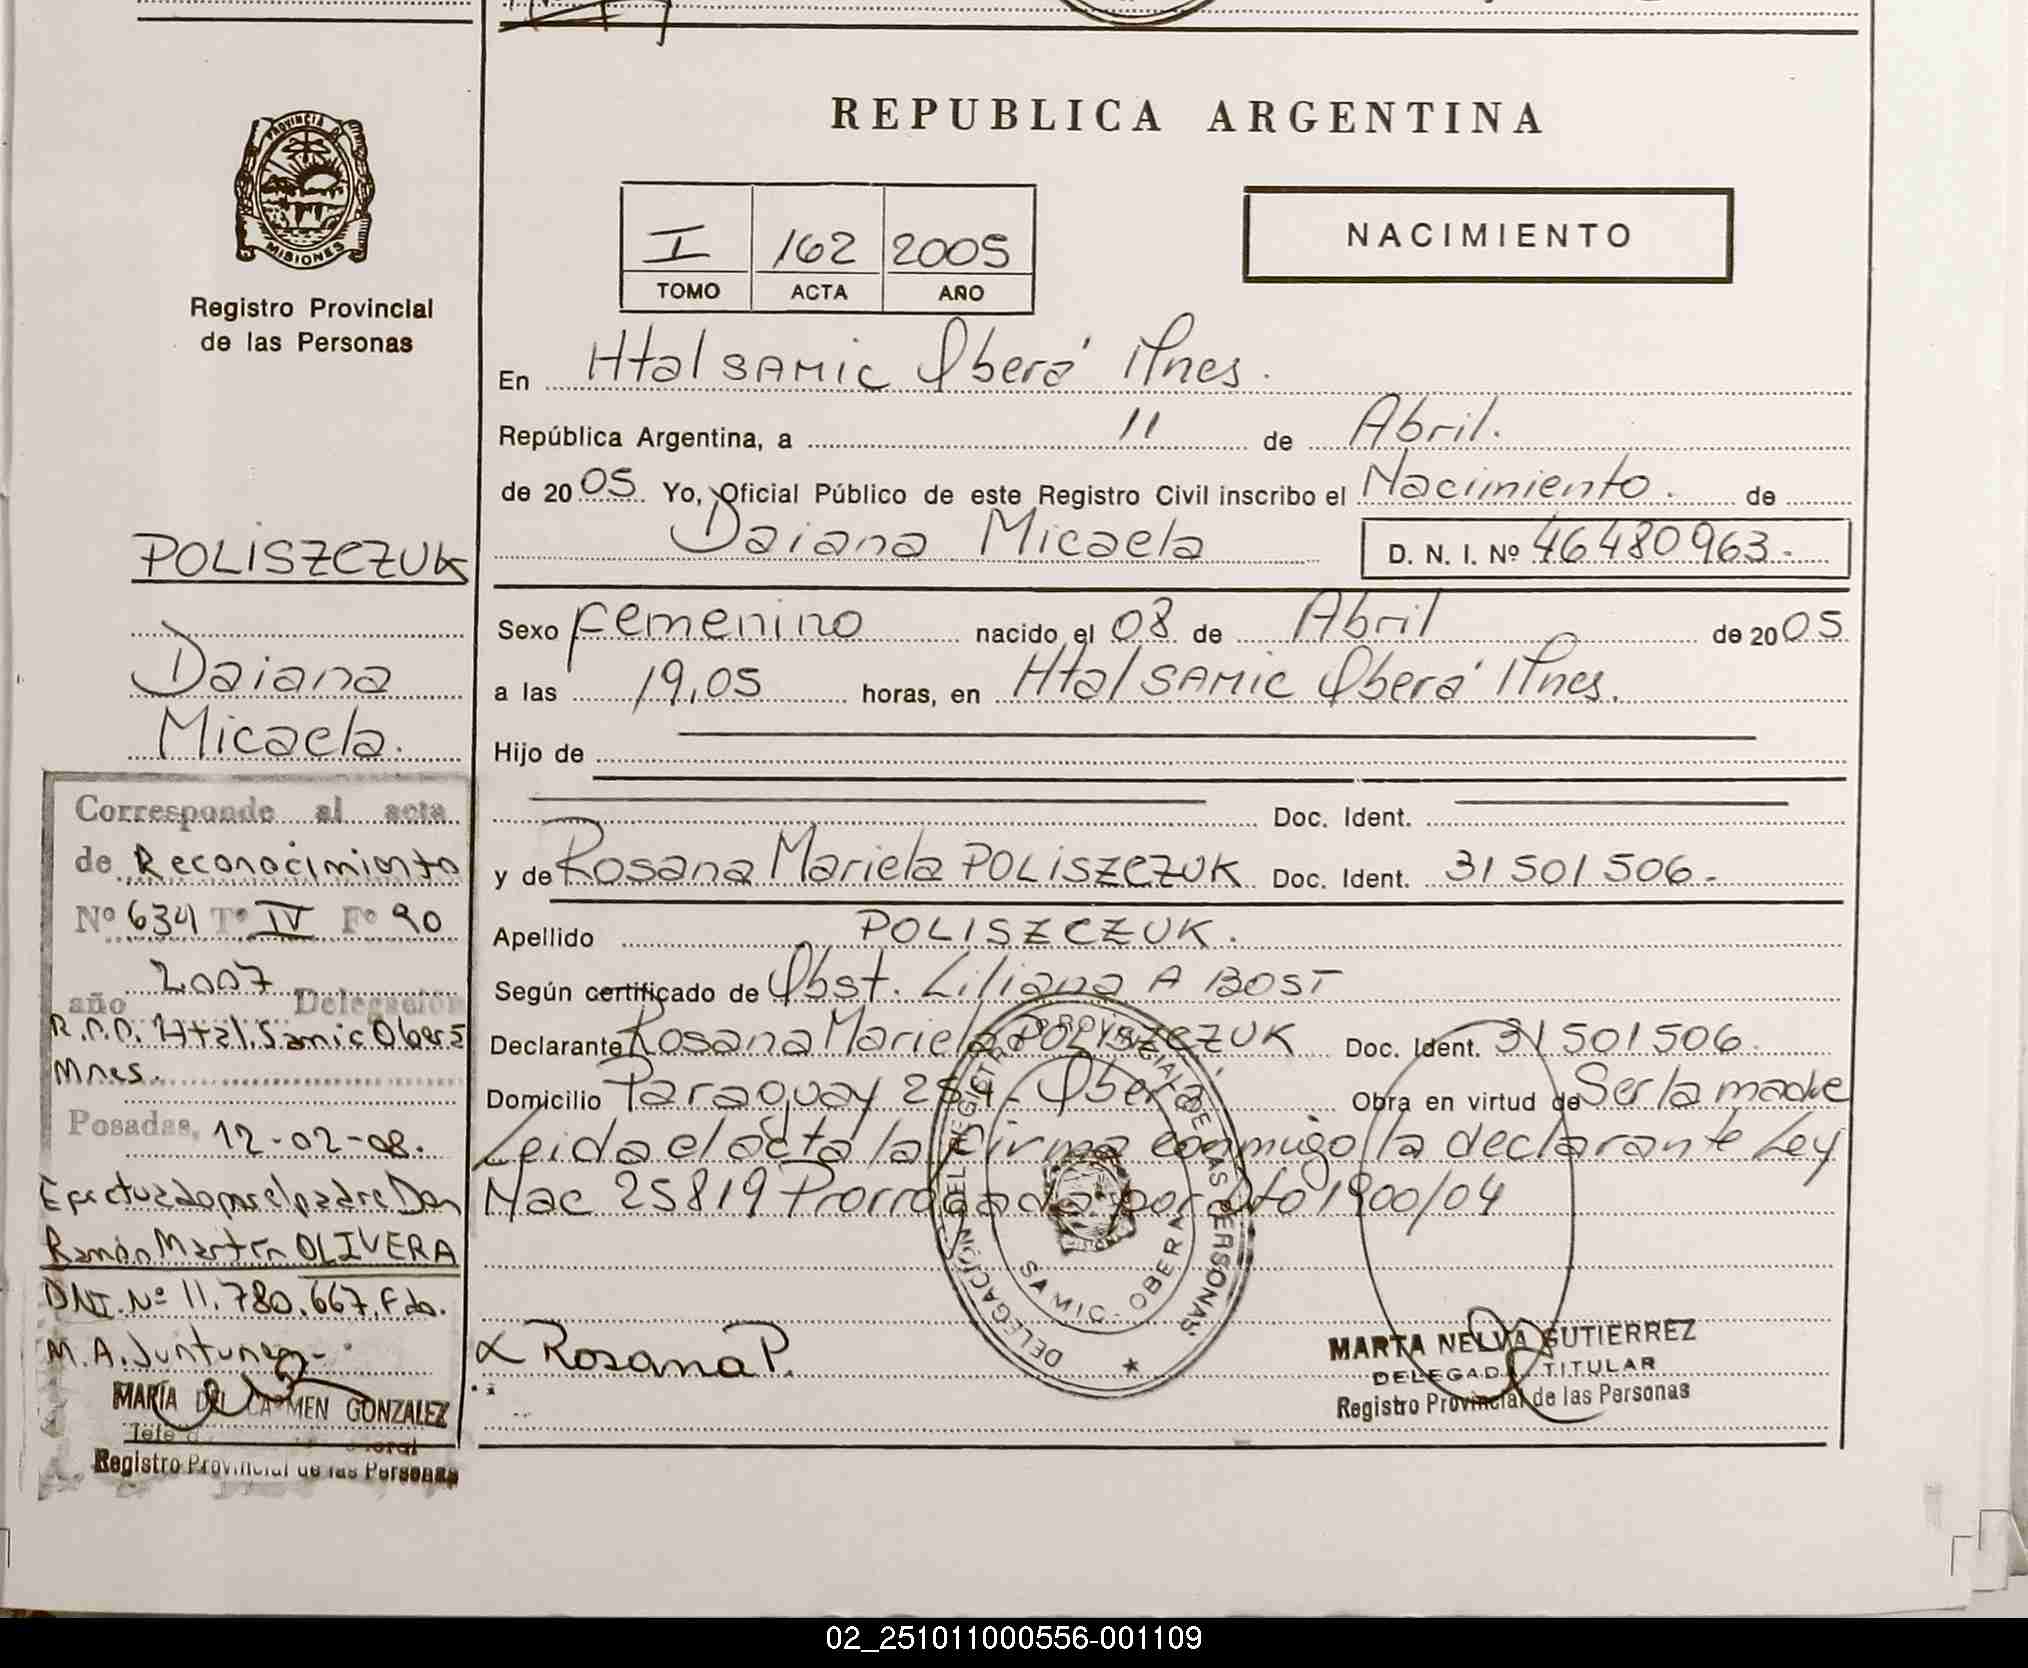 REPUBLICA ARGENTINA
PROVINCIA DE
MISIONES
Registro Provincial
de las Personas
I 162 2005
TOMO ACTA AÑO
NACIMIENTO
En Htal SAMIC Oberá Mnes.
República Argentina, a 11 de Abril.
de 2005. Yo, Oficial Público de este Registro Civil inscribo el Nacimiento. de
Daiana Micaela D. N. I. Nº 46480963.-
Sexo femenino nacido el 08 de Abril de 2005
a las 19,05 horas, en Htal SAMIC Oberá Mnes.
Hijo de
Doc. Ident.
y de Rosana Mariela POLISZCZUK Doc. Ident. 31 501 506.-
Apellido POLISZCZUK.
Según certificado de Obst. Liliana A BOST
Declarante Rosana Mariela POLISZCZUK Doc. Ident. 31 501 506
Domicilio Paraguay 254 - Oberá Obra en virtud de Ser la madre
Leida el acta la firma conmigo la declarante Ley
Nac 25819 Prorrogada por Dto 1900/04
Rosana P.
DELEGACIÓN DEL REGISTRO PROVINCIAL DE LAS PERSONAS
SAMIC - OBERA
MARTA NELVA GUTIERREZ
DELEGADA TITULAR
Registro Provincial de las Personas
POLISZCZUK
Daiana
Micaela.
Corresponde al acta
de Reconocimiento
Nº 634 Tº IV Fº 90
año 2007 Delegación
R.P.P. Htal. Samic Oberá
Mnes.
Posadas, 12-02-08.
Efectuado por el padre Don
Ramón Martín OLIVERA
DNI. Nº 11.780.667. Fdo.
M. A. Junturney-
MARÍA DEL CARMEN GONZALEZ
Registro Provincial de las Personas
02_251011000556-001109